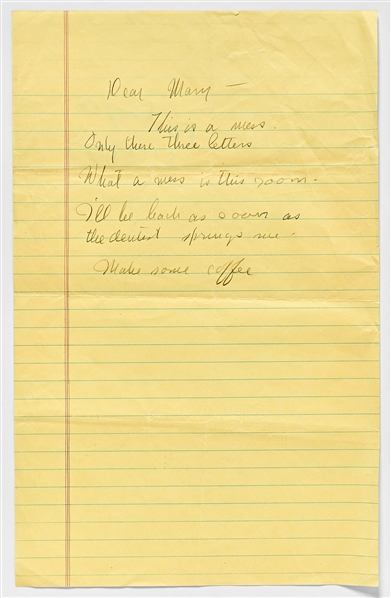 Dear Mary —
This is a mess.
Only these three letters
What a mess is this room.
I'll be back as soon as
the dentist springs me.
Make some coffee